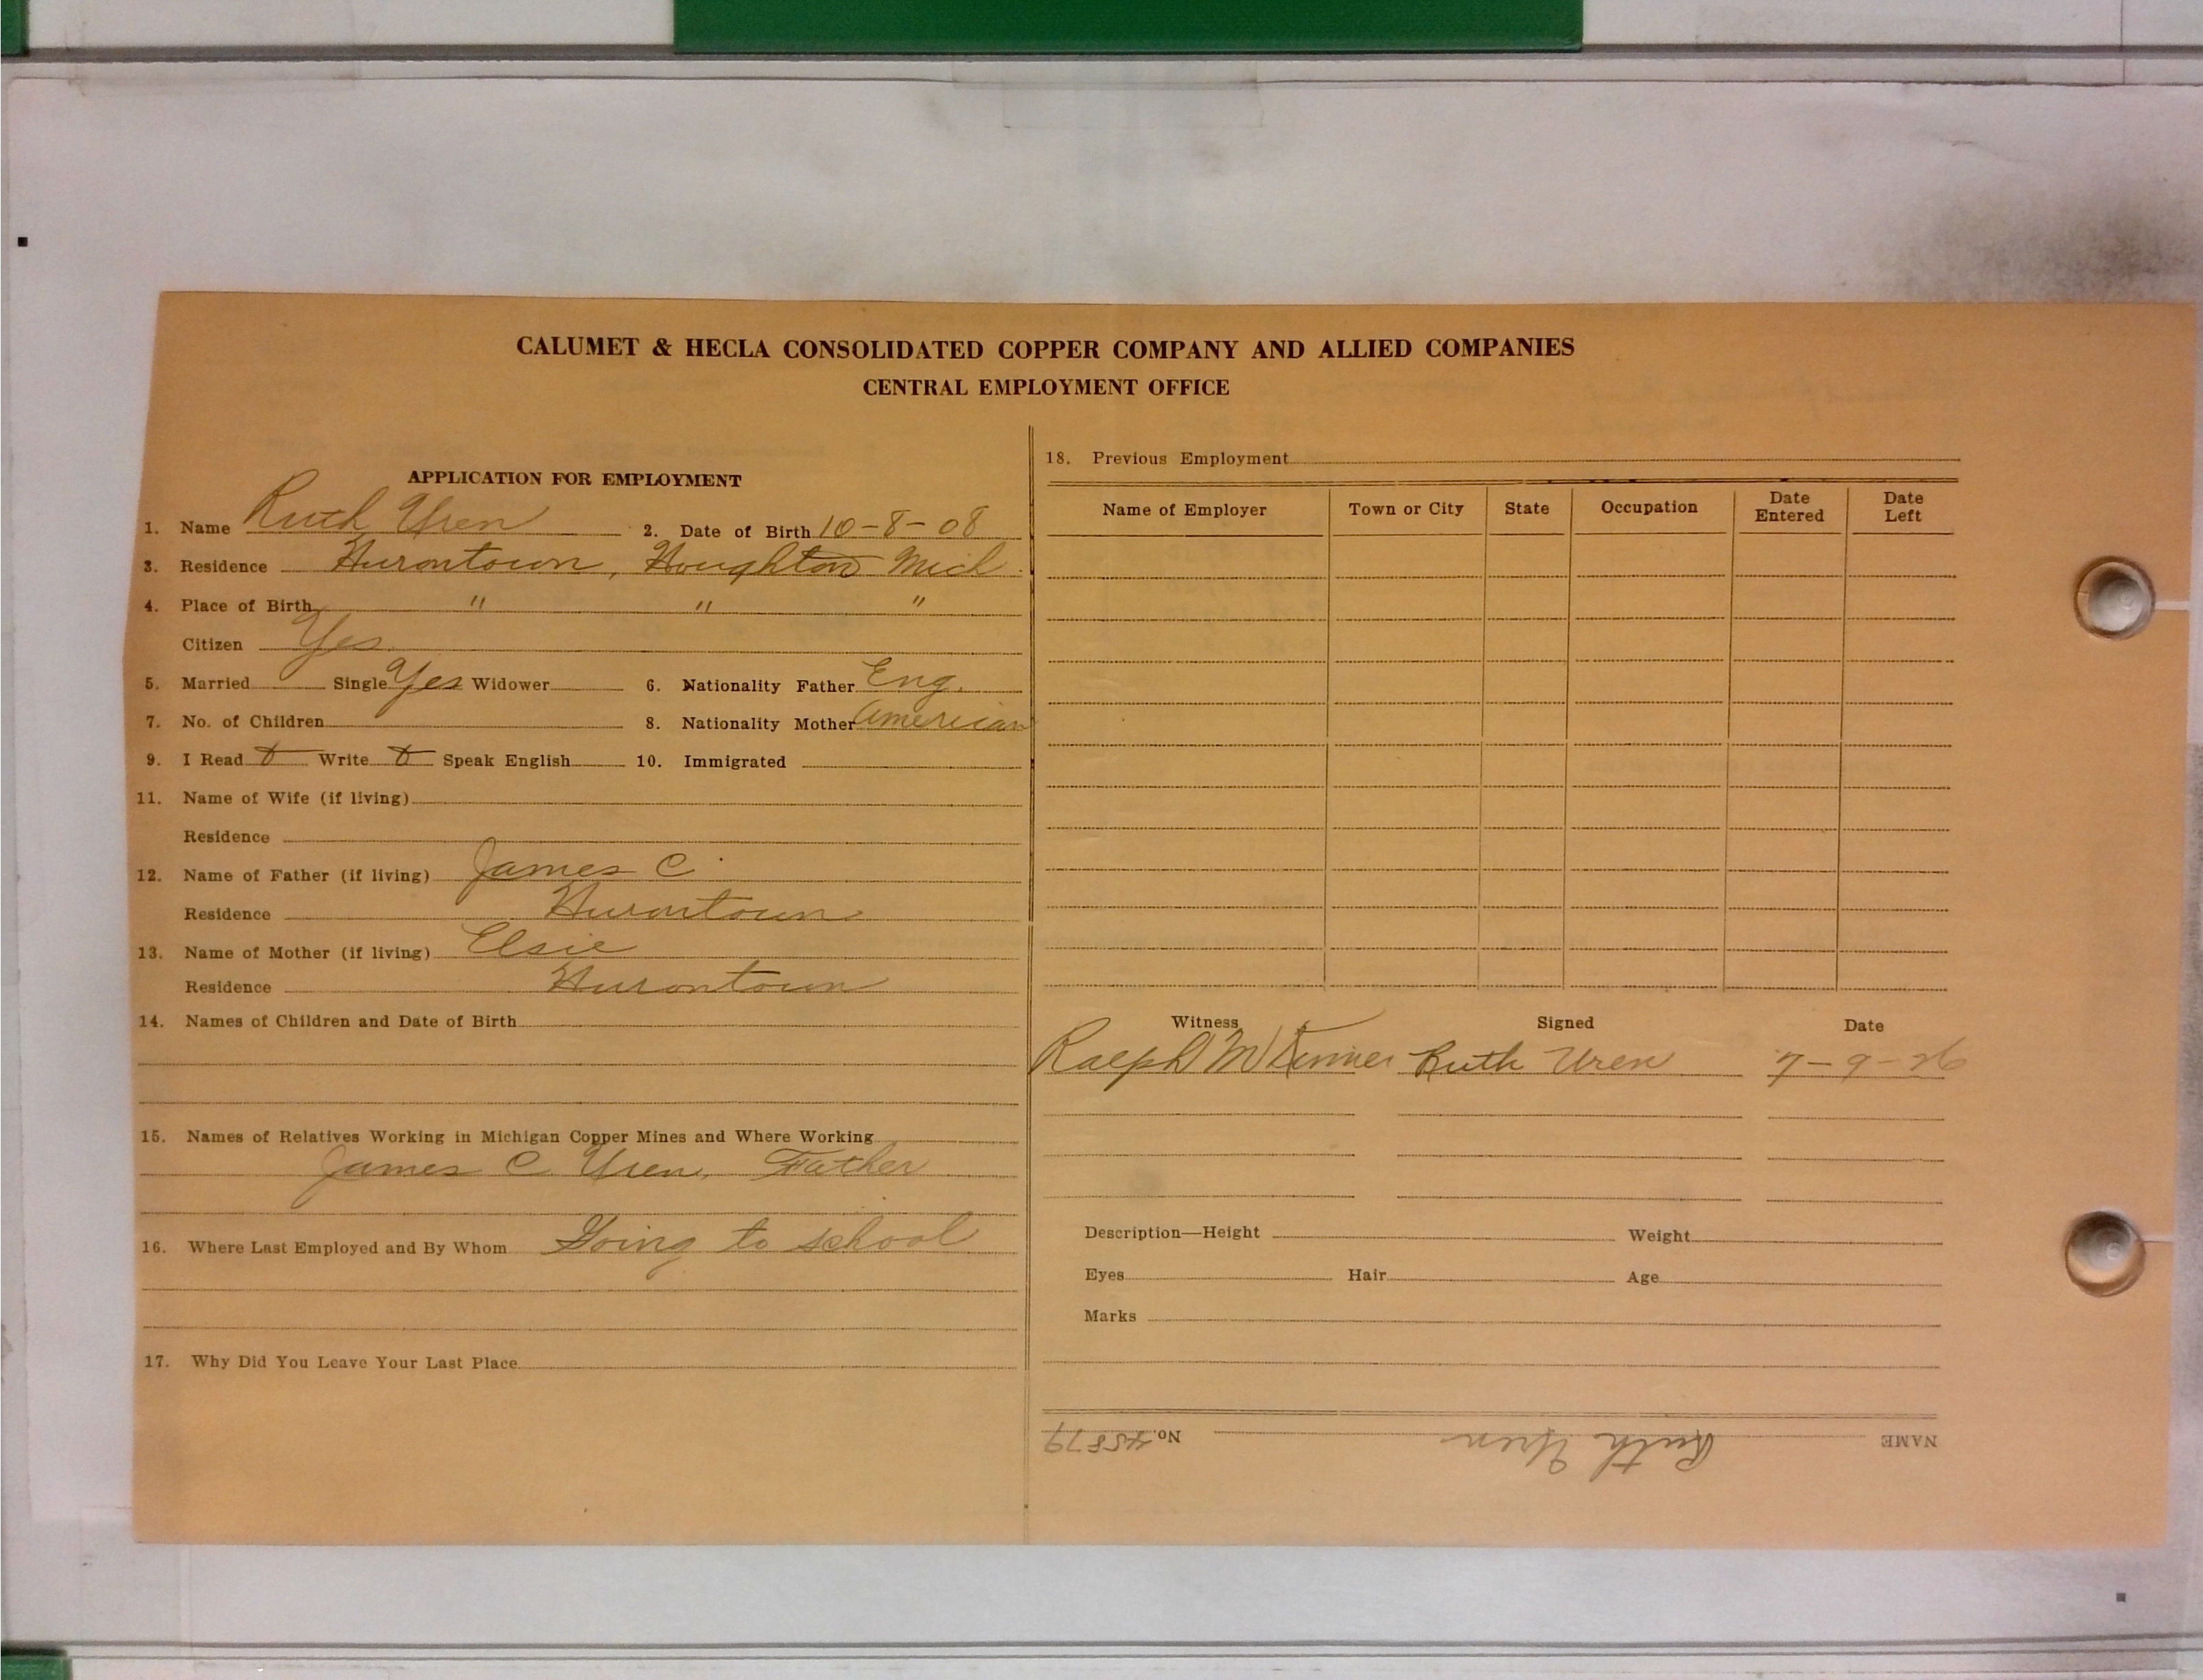 CALUMET & HECLA CONSOLIDATED COPPER COMPANY AND ALLIED COMPANIES
CENTRAL EMPLOYMENT OFFICE
APPLICATION FOR EMPLOYMENT
1. Name Ruth Uren 2. Date of Birth 10-8-08
3. Residence Hurontown, Houghton Mich
4. Place of Birth " " "
Citizen Yes
5. Married Single Yes Widower 6. Nationality Father Eng.
7. No. of Children 8. Nationality Mother American
9. I Read Write Speak English 10. Immigrated
11. Name of Wife (if living)
Residence
12. Name of Father (if living) James C
Residence Hurontown
13. Name of Mother (if living) Elsie
Residence Hurontown
14. Names of Children and Date of Birth
15. Names of Relatives Working in Michigan Copper Mines and Where Working
James C Uren, Father
16. Where Last Employed and By Whom Going to school
17. Why Did You Leave Your Last Place
18. Previous Employment
Name of Employer Town or City State Occupation Date Entered Date Left
Witness Signed Date
Ralph Ruth Uren 7-9-26
Description—Height Weight
Eyes Hair Age
Marks
NAME Ruth Uren No. 45879